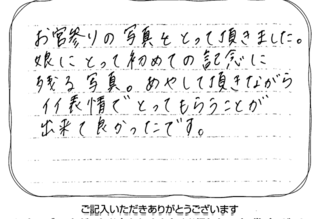 お宮参りの写真をとって頂きました。
娘にとって初めての記念に
残る写真。あやして頂きながら
イイ表情でとってもらうことが
出来て良かったです。
ご記入いただきありがとうございます